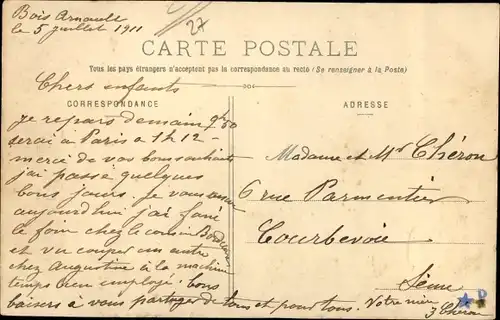 Bois Arnault
le 5 juillet 1911
27
CARTE POSTALE
Tous les pays étrangers n'acceptent pas la correspondance au recto (Se renseigner à la Poste)
Chers enfants
CORRESPONDANCE
ADRESSE
je repars demain 9h50
serai à Paris à 1h12
merci de vos bons souhaits
j'ai passé quelques
bons jours. je vous
aujourdhui j'ai fané
le foin chez le cousin
et vu couper un autre
chez Augustine à la machine
temps bien employé. bons
baisers à vous partager de tous et pour tous. Votre mère
J Chéron
Madame et Mr Chéron
6 rue Parmentier
Courbevoie
Seine